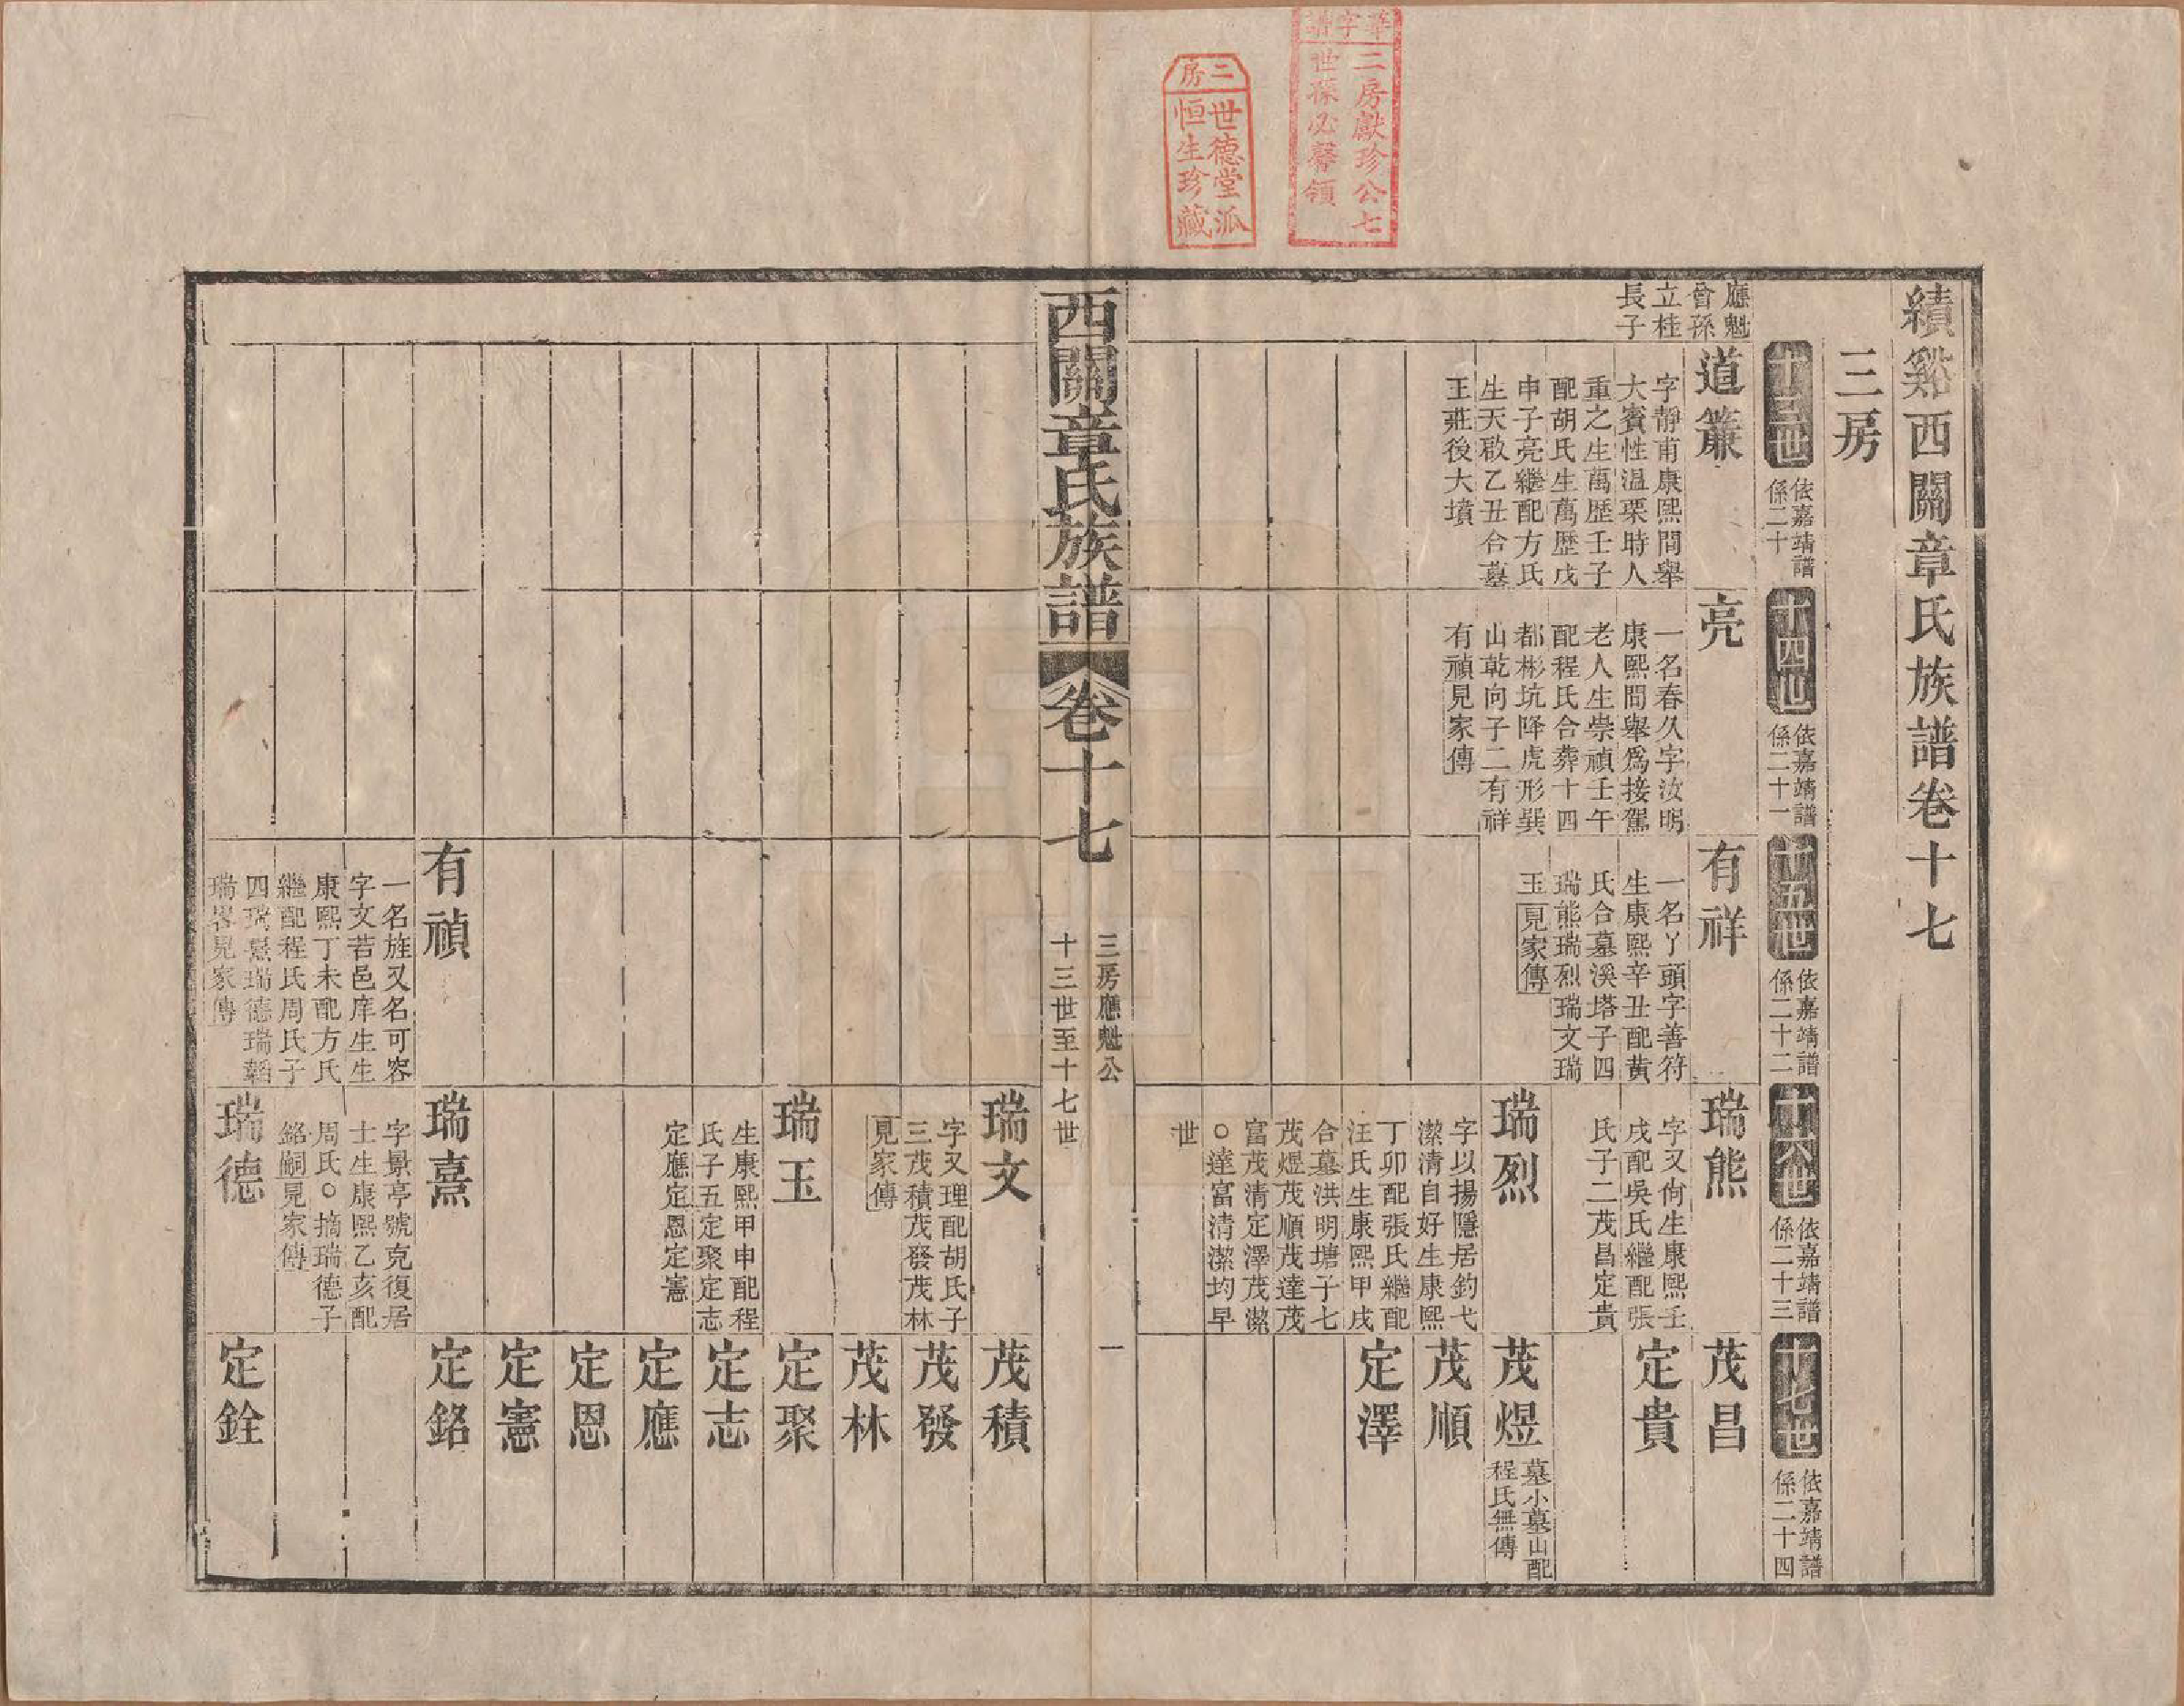 華字譜
三房獻珍公七
世孫必馨領
三房
世德堂派
恒生珍藏
績谿西關章氏族譜卷十七
三房
十三世
依嘉靖譜
係二十
十四世
依嘉靖譜
係二十一
十五世
依嘉靖譜
係二十二
十六世
依嘉靖譜
係二十三
十七世
依嘉靖譜
係二十四
應魁
曾孫
立桂
長子
道簾
字靜甫康熙間舉
大賓性温栗時人
重之生萬歷壬子
配胡氏生萬歷戊
申子亮繼配方氏
生天啟乙丑合墓
王莊後大墳
亮
一名春久字汝明
康熙間舉爲接駕
老人生崇禎壬午
配程氏合葬十四
都彬坑降虎形巽
山乾向子二有祥
有禎見家傳
有祥
一名丫頭字善符
生康熙辛丑配黃
氏合墓溪塔子四
瑞熊瑞烈瑞文瑞
玉見家傳
瑞熊
字又尙生康熙壬
戌配吳氏繼配張
氏子二茂昌定貴
茂昌
定貴
瑞烈
字以揚隱居釣弋
潔清自好生康熙
丁卯配張氏繼配
汪氏生康熙甲戌
合墓洪明塘子七
茂煜茂順茂達茂
富茂清定澤茂潔
○達富清潔均早
世
茂煜
墓小墓山配
程氏無傳
茂順
定澤
西關章氏族譜
卷十七
三房應魁公
十三世至十七世
一
瑞文
字又理配胡氏子
三茂積茂發茂林
見家傳
茂積
茂發
茂林
瑞玉
生康熙甲申配程
氏子五定聚定志
定應定恩定憲
定聚
定志
定應
定恩
定憲
有禎
一名旌又名可容
字文若邑庠生生
康熙丁未配方氏
繼配程氏周氏子
四瑞熹瑞德瑞韜
瑞畧見家傳
瑞熹
字景亭號克復居
士生康熙乙亥配
周氏○摘瑞德子
銘嗣見家傳
定銘
瑞德
定銓